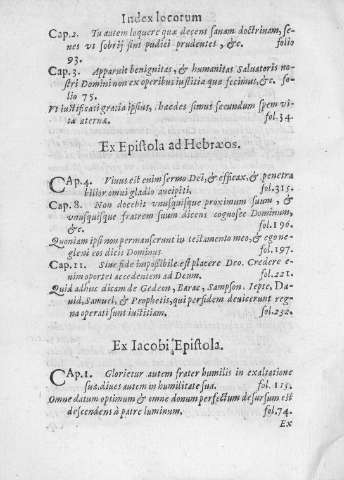 Index locorum
Cap.2. Tu autem loquere quæ decens sanam doctrinam, se-
nes vt sobrij sint pudici prudentes, &c. folio
93.
Cap.3. Apparuit benignitas, & humanitas Saluatoris no-
stri Domini non ex operibus iustitiæ quæ fecimus, &c. fo-
lio 75.
Vt iustificati gratia ipsius, hæredes simus secundum spem vi-
tæ æternæ. fol.34.
Ex Epistola ad Hebræos.
CAp.4. Viuus est enim sermo Dei, & efficax, & penetra
bilior omni gladio ancipiti. fol.315.
Cap.8. Non docebit vnusquisque proximum suum, &
vnusquisque fratrem suum dicens cognosce Dominum,
&c. fol.196.
Quoniam ipsi non permanserunt in testamento meo, & ego ne-
glexi eos dicit Dominus. fol.197.
Cap.11. Sine fide impossibile est placere Deo. Credere e-
nim oportet accedentem ad Deum. fol.221.
Quid adhuc dicam de Gedeon, Barac, Sampson, Iepte, Da-
uid, Samuel, & Prophetis, qui per fidem deuicerunt reg-
na operati sunt iustitiam. fol.232.
Ex Iacobi Epistola.
CAp.1. Glorietur autem frater humilis in exaltatione
sua, diues autem in humilitate sua. fol. 115.
Omne datum optimum & omne donum perfectum desursum est
descendens à patre luminum. fol.74.
Ex